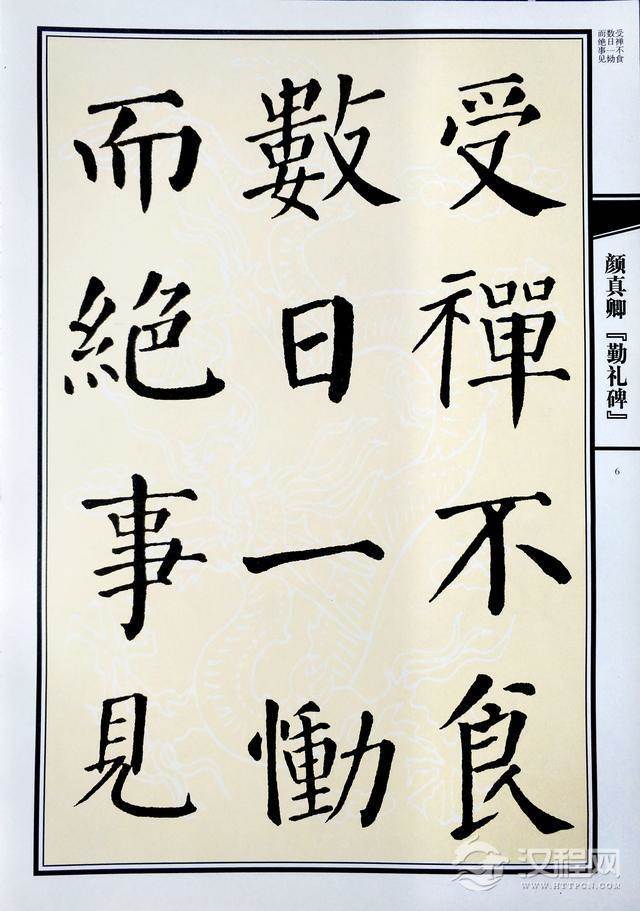 受禪不食
數日一慟
而絕事見
受禅不食
数日一恸
而绝事见
颜真卿『勤礼碑』
6
汉程网
WWW.HTTPCN.COM